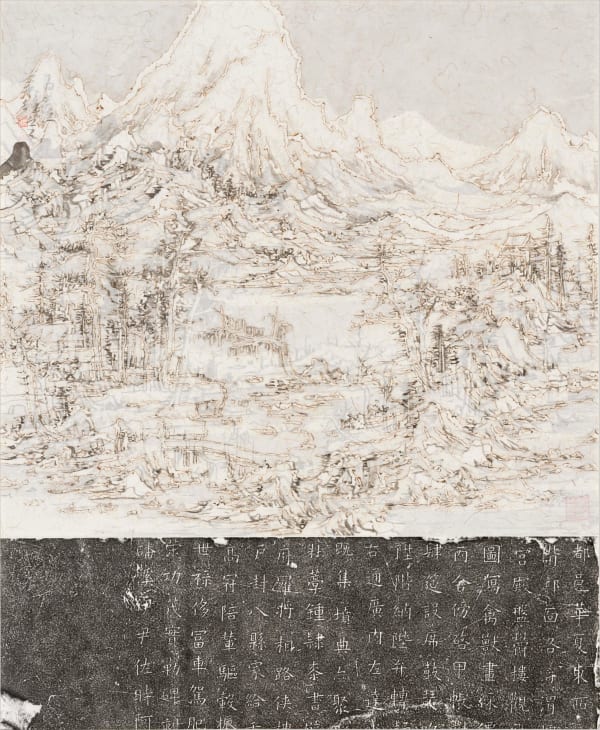 都邑華夏東西
背邙面洛浮渭
宮殿盤鬱樓觀
圖寫禽獸畫綵
丙舍傍啓甲帳
肆筵設席鼓瑟
陞階納陛弁轉
右通廣內左達
既集墳典亦聚
杜稾鍾隸漆書
府羅將相路俠槐
戶封八縣家給千
高冠陪輦驅轂振
世祿侈富車駕肥
策功茂實勒碑刻
磻溪伊尹佐時阿